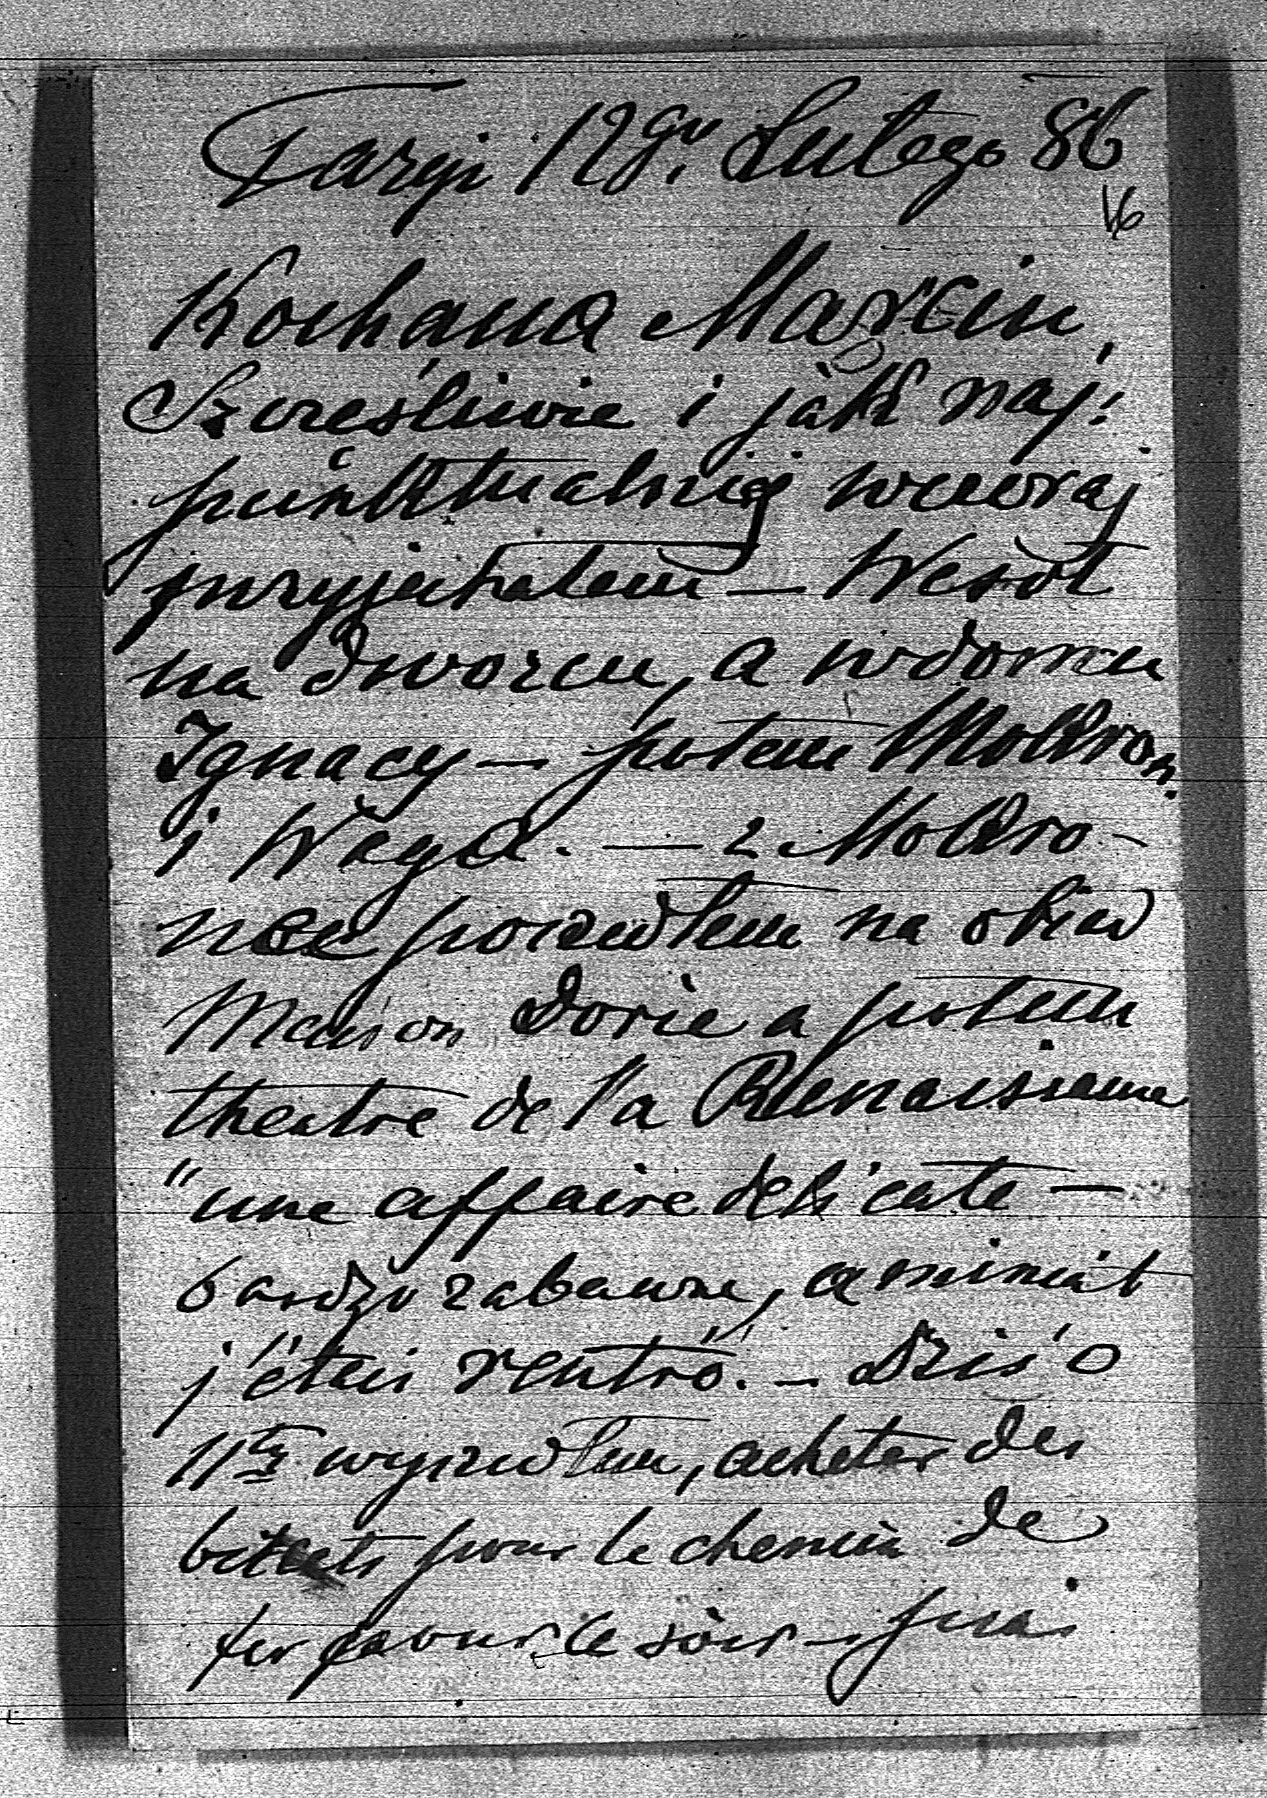 Paryż 12go. Lutego 86
16
Kochana Marcin,
Szczęśliwie i jak naj:
punktualniej wczoraj
przyjechałem — Wesół
na dworcu, a w domu
Ignacy — potem Mokron.
i Waga. — z Mokro-
poszedłem na obiad
Maison Dorée a potem
theatre de la Renaissance
"une affaire delicate —
bardzo zabawne, a minuit
j'étais rentré. — Dziś o
11tej wyszedłem, acheter des
billets pour le chemin de
fer pour le soir —